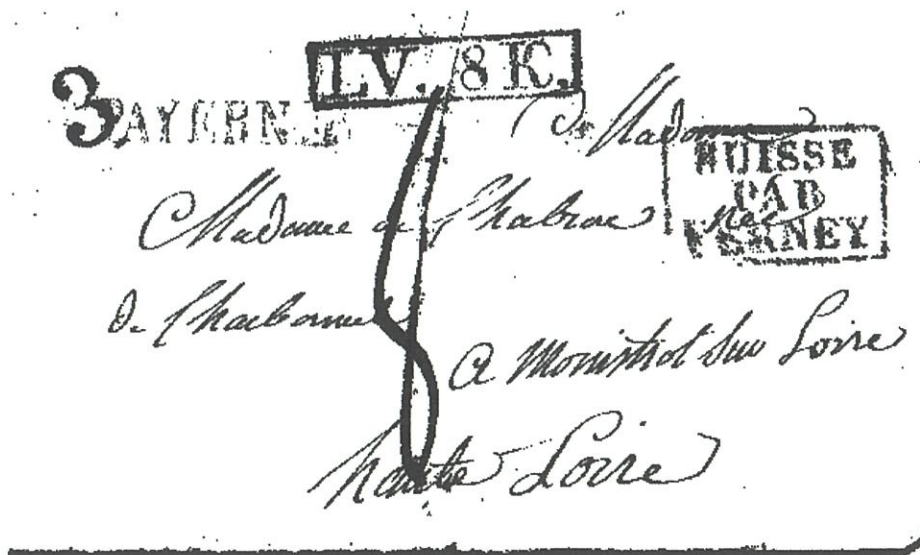 L.V. 8 K.
3 PAYERNE
SUISSE
PAR
FERNEY
Madame de Chabron née
de Charbonnel
8
A Monistrol Sur Loire
haute Loire